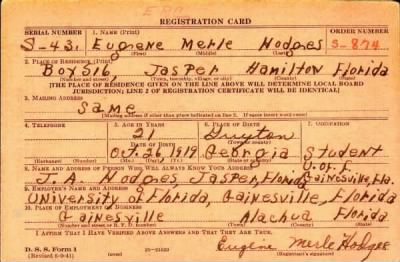 REGISTRATION CARD
SERIAL NUMBER 1. NAME (Print) ORDER NUMBER
S-43. Eugene Merle Hodges S-874
(First) (Middle) (Last)
2. PLACE OF RESIDENCE (Print)
Box 516, Jasper Hamilton Florida
(Number and street) (Town, township, village, or city) (County) (State)
[THE PLACE OF RESIDENCE GIVEN ON THE LINE ABOVE WILL DETERMINE LOCAL BOARD
JURISDICTION; LINE 2 OF REGISTRATION CERTIFICATE WILL BE IDENTICAL]
3. MAILING ADDRESS
Same
[Mailing address if other than place indicated on line 2. If same insert word same]
4. TELEPHONE 5. AGE IN YEARS 6. PLACE OF BIRTH 7. OCCUPATION
21 Guyton
DATE OF BIRTH (Town or county)
Oct. 26, 1919 Georgia Student
(Exchange) (Number) (Mo.) (Day) (Yr.) (State or country) U. of F.
8. NAME AND ADDRESS OF PERSON WHO WILL ALWAYS KNOW YOUR ADDRESS Gainesville, Fla.
J. A. Hodges, Jasper, Florida
9. EMPLOYER'S NAME AND ADDRESS
University of Florida, Gainesville, Florida
10. PLACE OF EMPLOYMENT OR BUSINESS
Gainesville Alachua Florida
(Number and street or R. F. D. number) (Town) (County) (State)
I AFFIRM THAT I HAVE VERIFIED ABOVE ANSWERS AND THAT THEY ARE TRUE.
D. S. S. Form 1 Eugene Merle Hodges
(Revised 6-9-41) (over) (Registrant's signature)